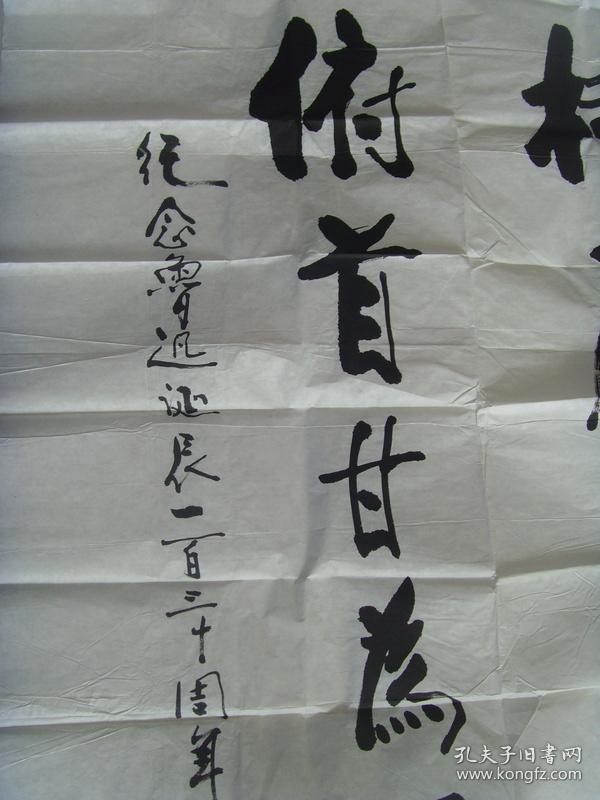 俯首甘為
纪念鲁迅诞辰一百三十周年
孔夫子旧書网
www.kongfz.com